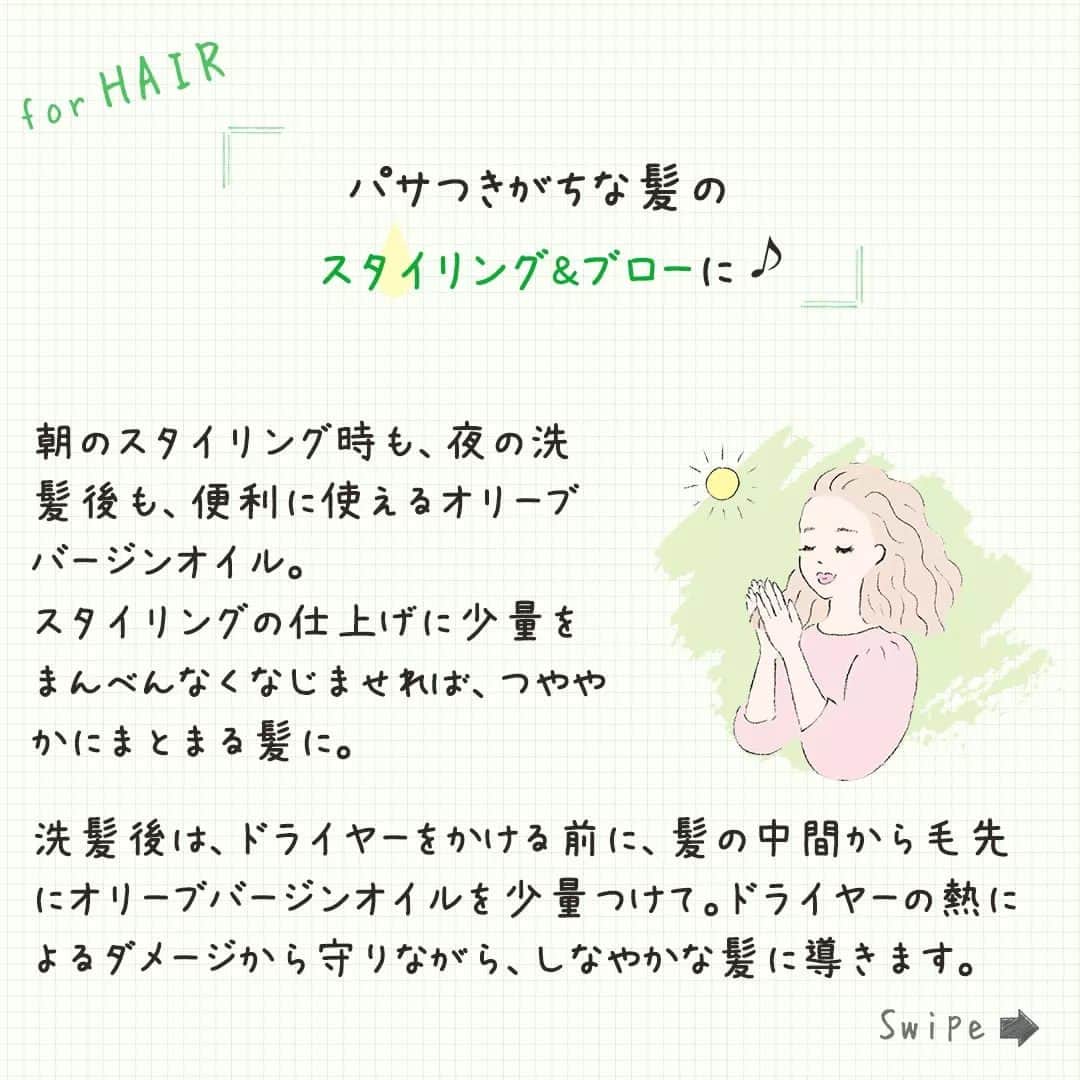 for HAIR
パサつきがちな髪の
スタイリング&ブローに♪
朝のスタイリング時も、夜の洗
髪後も、便利に使えるオリーブ
バージンオイル。
スタイリングの仕上げに少量を
まんべんなくなじませれば、つやや
かにまとまる髪に。
洗髪後は、ドライヤーをかける前に、髪の中間から毛先
にオリーブバージンオイルを少量つけて。ドライヤーの熱に
よるダメージから守りながら、しなやかな髪に導きます。
Swipe